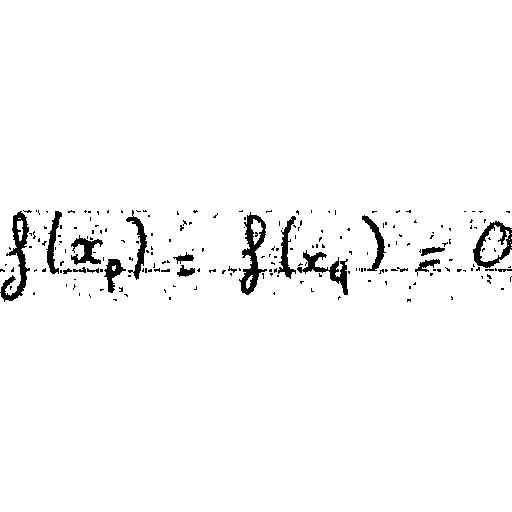 f(x_p) = f(x_q) = 0